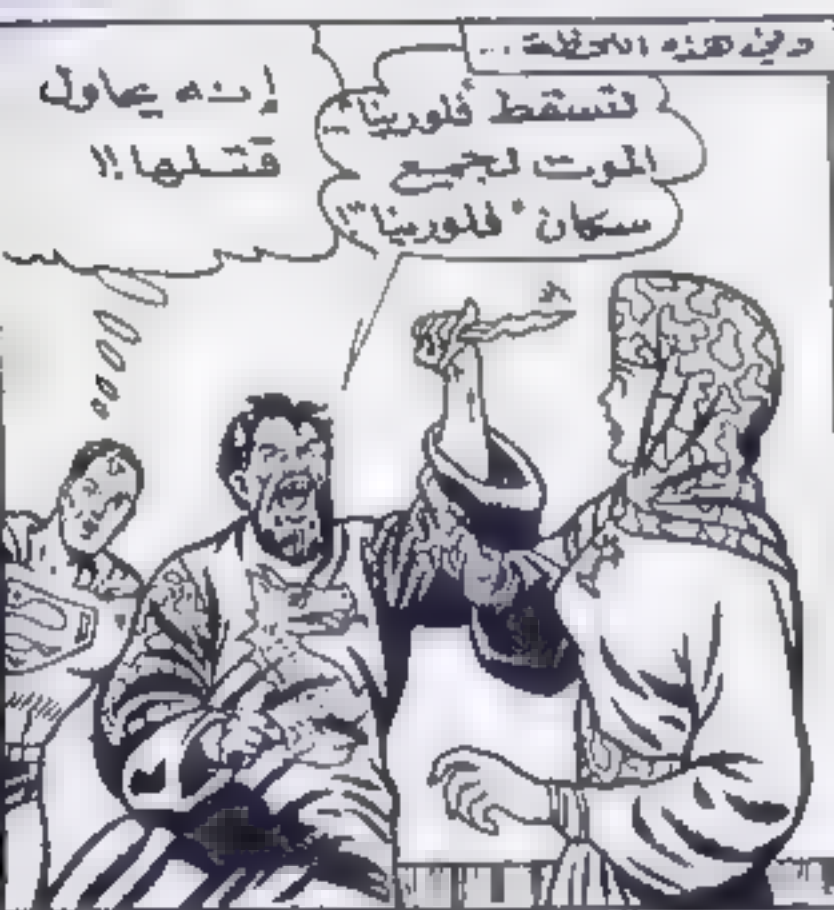 وفي هذه اللحظة ...
لتسقط "فلورينا"..
الموت لجميع
سكان "فلورينا"!
إنه يحاول
قتلها!!